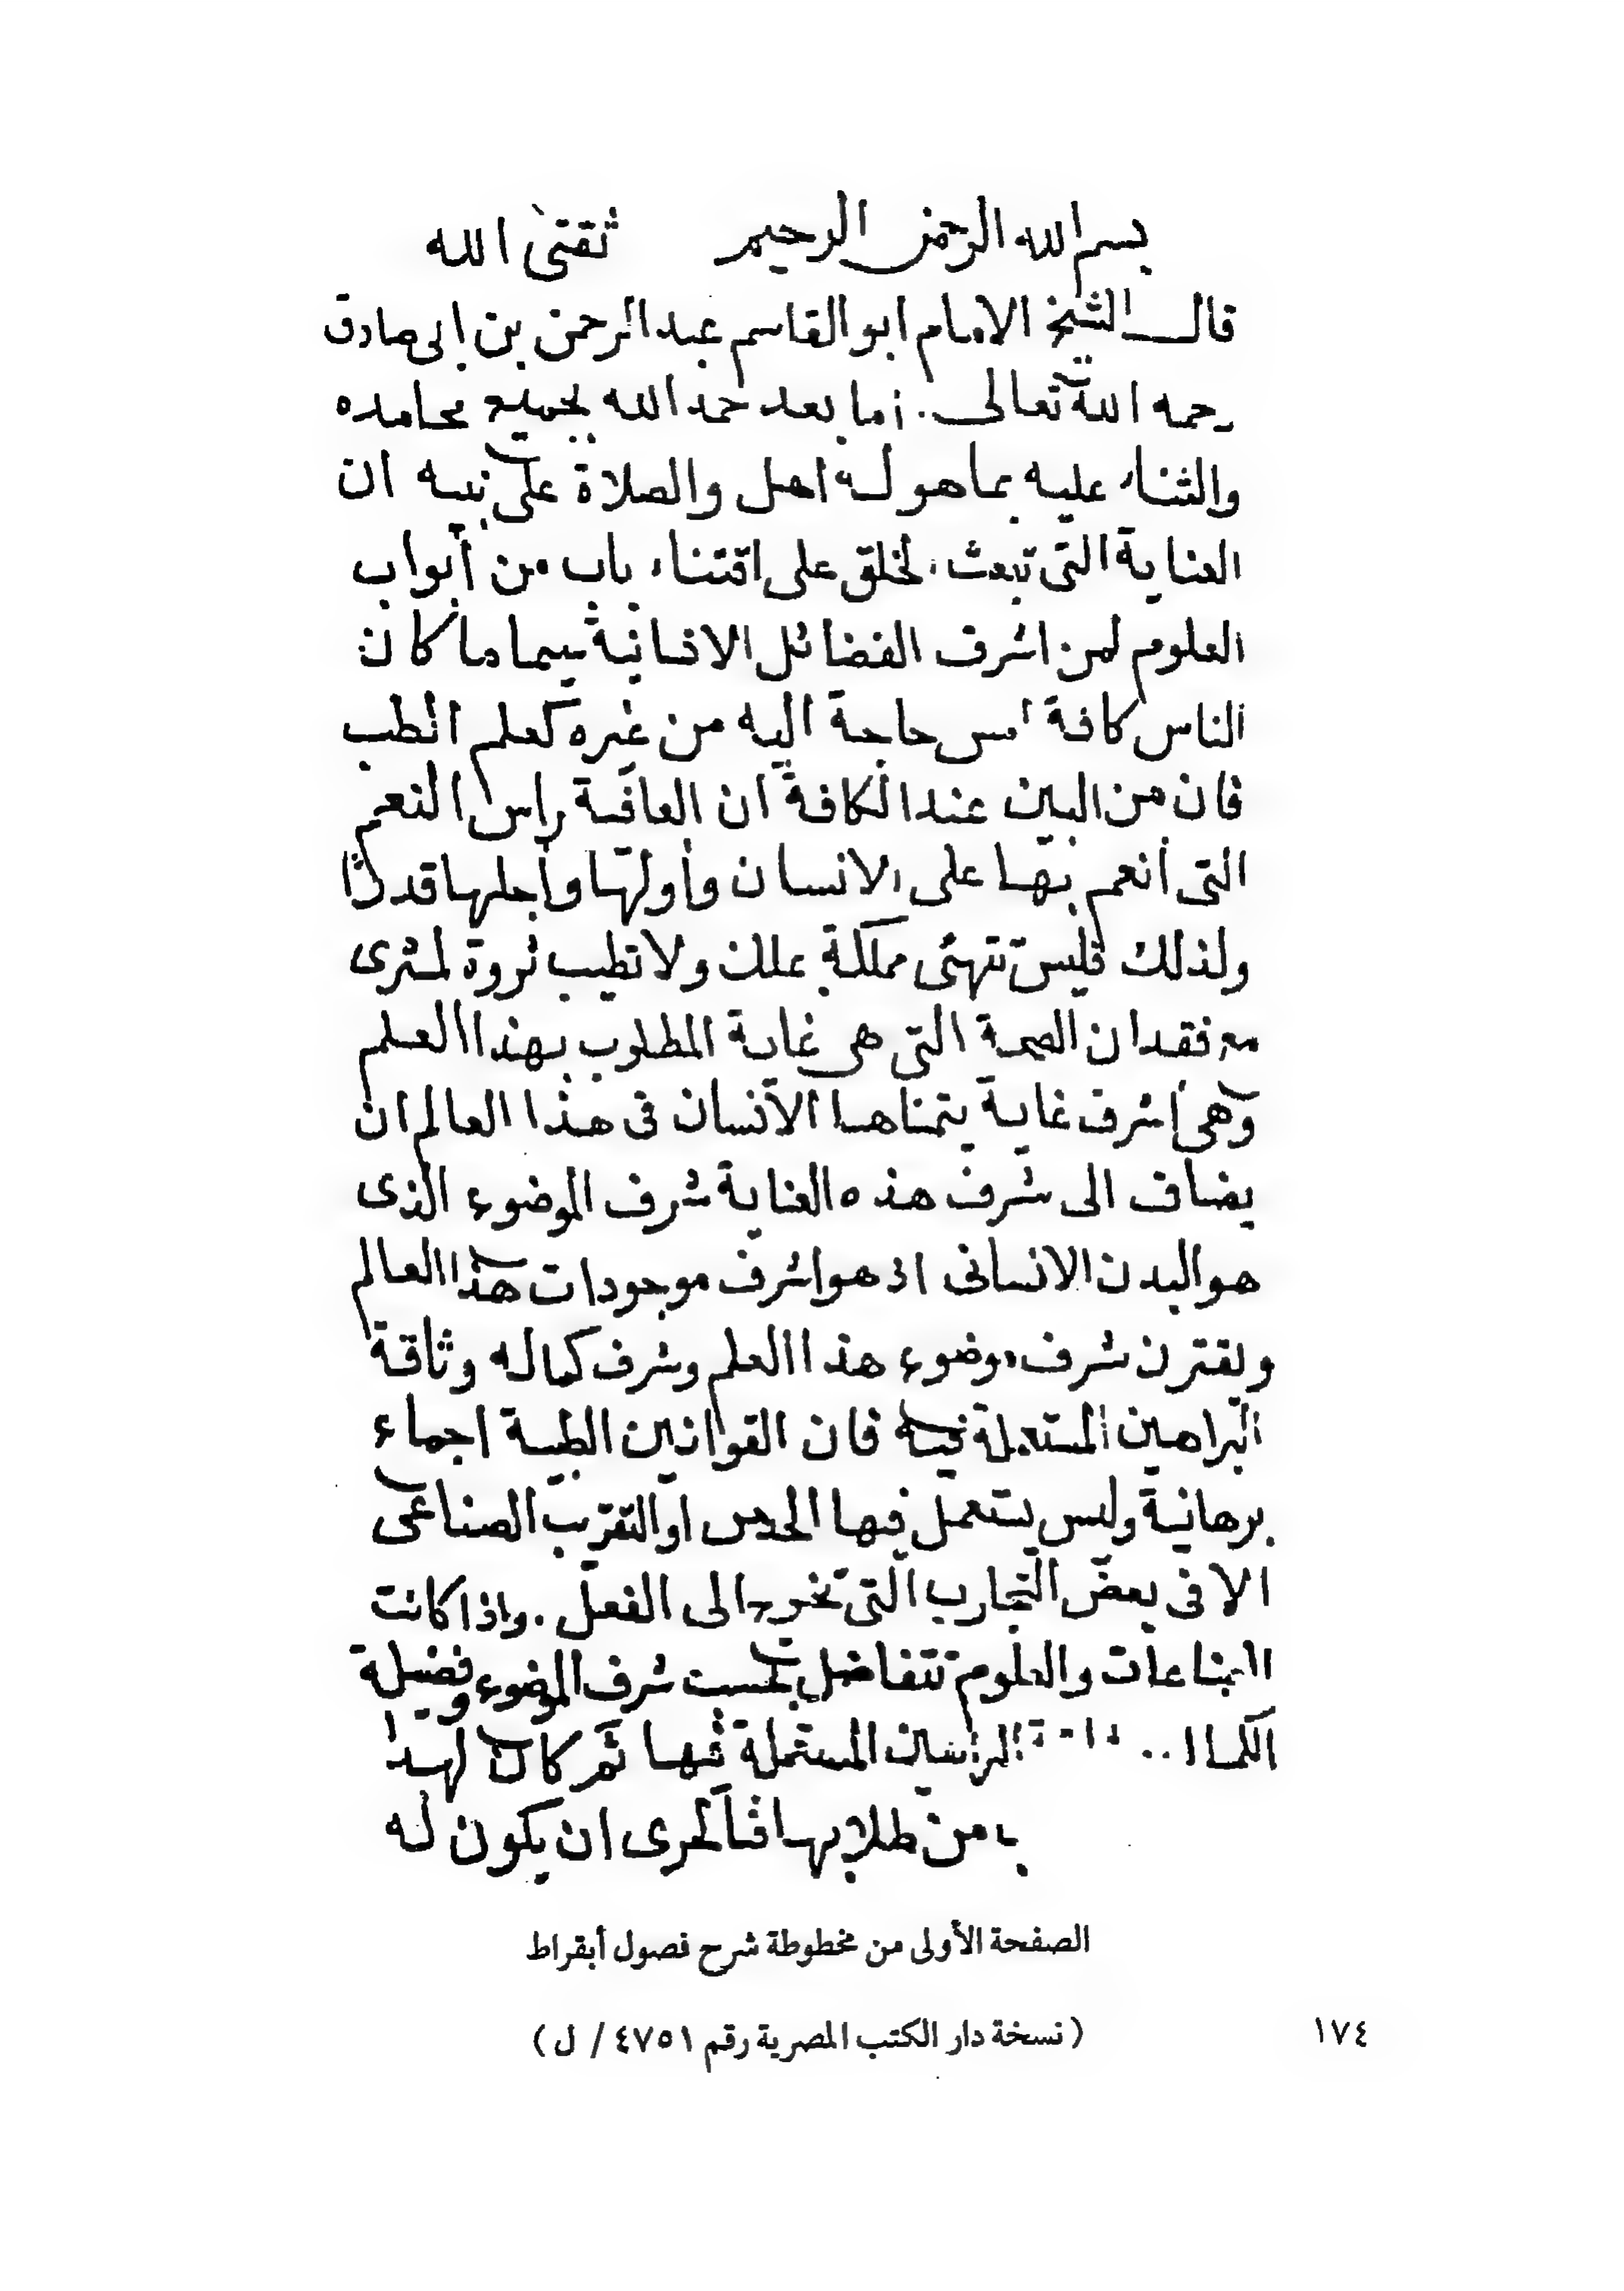 بسم الله الرحمن الرحيم ثقتى الله
قال الشيخ الامام ابو القاسم عبد الرحمن بن ابى صادق
رحمه الله تعالى . أما بعد حمد الله بجميع محامده
والثناء عليه بما هو له اهل والصلاة على نبيه ان
العناية التى تبعث الخلق على اقتناء باب من أبواب
العلوم لمن اشرف الفضائل الانسانية سيما ما كان
الناس كافة امس حاجة اليه من غيره كعلم الطب
فان من البين عند الكافة ان العافية راس النعم
التى أنعم بها على الانسان وأولها وأجلها قدرا
ولذلك فليس تتهنى مملكة بملك ولا تطيب ثروة لمثرى
مع فقدان الصحة التى هى غاية المطلوب بهذا العلم
وهى اشرف غاية يتمناها الانسان فى هذا العالم ان
يضاف الى شرف هذه العناية شرف الموضوع الذى
هو البدن الانسانى اذ هو اشرف موجودات هذا العالم
ويقترن شرف موضوع هذا العلم وشرف كماله وثاقة
البراهين المستعملة فيه فان القوانين الطبية اجماع
برهانية وليس يستعمل فيها الحدس او التقريب الصناعى
الا فى بعض التجارب التى تخرج الى الفعل . واذا كانت
الصناعات والعلوم تتفاضل بحسب شرف الموضوع وفضيلة
الكمال البراهين المستعملة فيها ثم كان لهذا
من طلابها فبالحرى ان يكون له
الصفحة الأولى من مخطوطة شرح فصول أبقراط
(نسخة دار الكتب المصرية رقم ٤٧٥١ / ل)
١٧٤